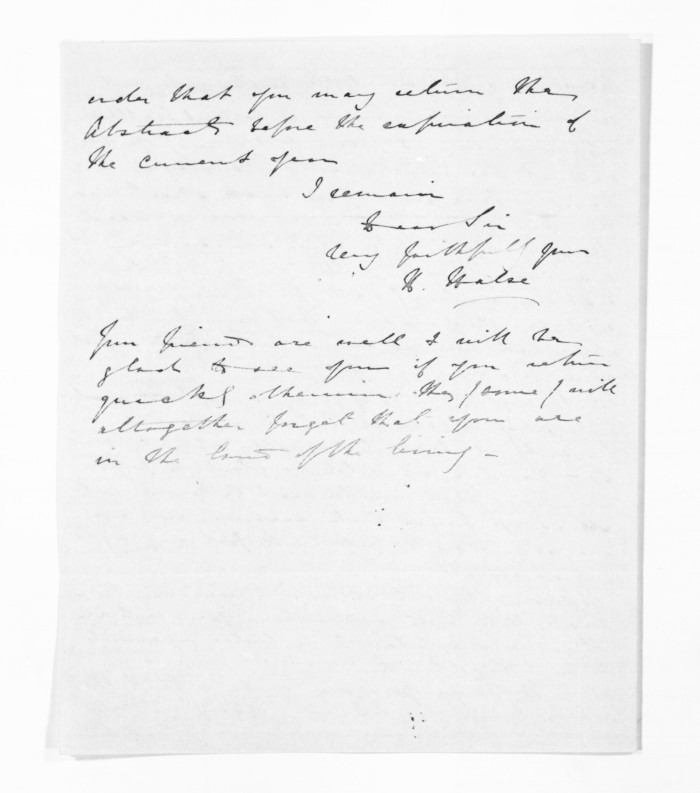 order that you may return the
Abstract before the expiration of
the current year
I remain
Dear Sir
very faithfully yours
H. Halse
Your friends are well & will be
glad to see you if you return
quickly otherwise they (some) will
altogether forget that you are
in the land of the living –